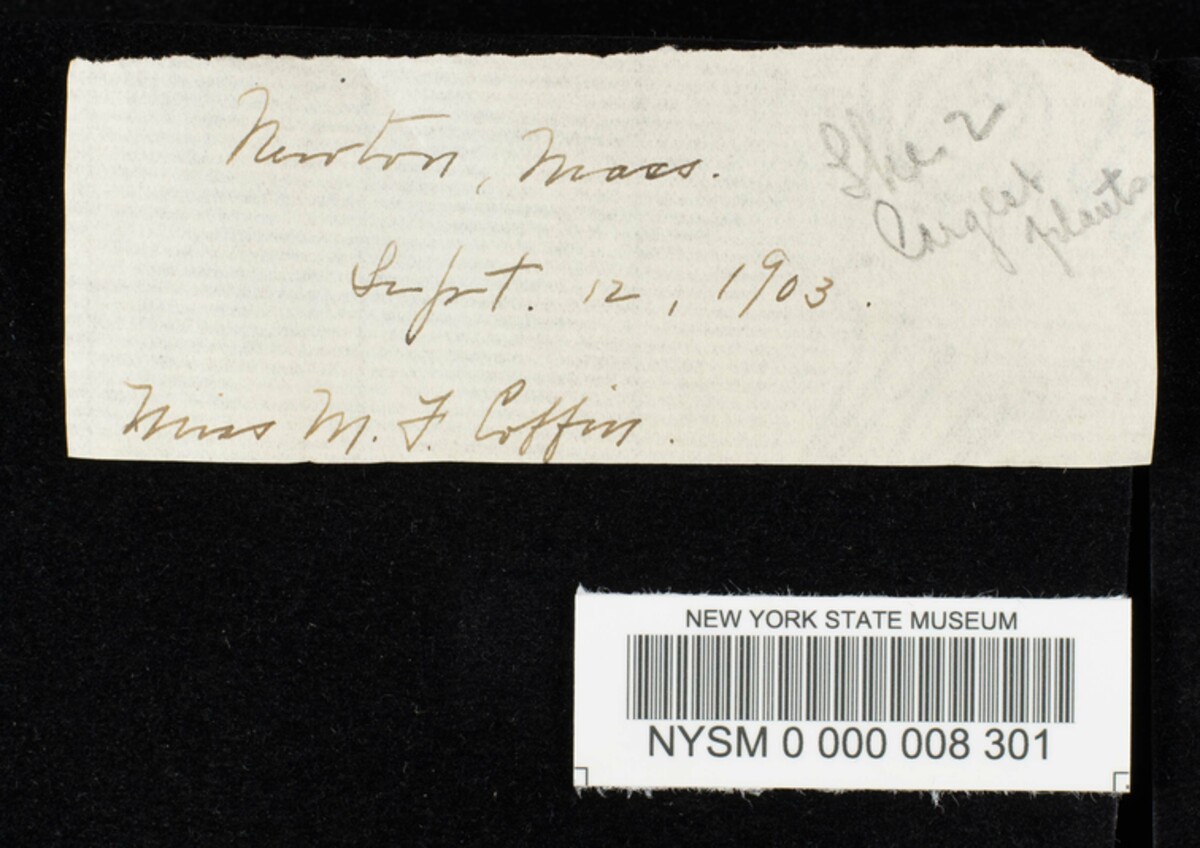 Newton, Mass.
Sept. 12, 1903.
Miss M. F. Coffin.
The 2
largest
plants
NEW YORK STATE MUSEUM
NYSM 0 000 008 301